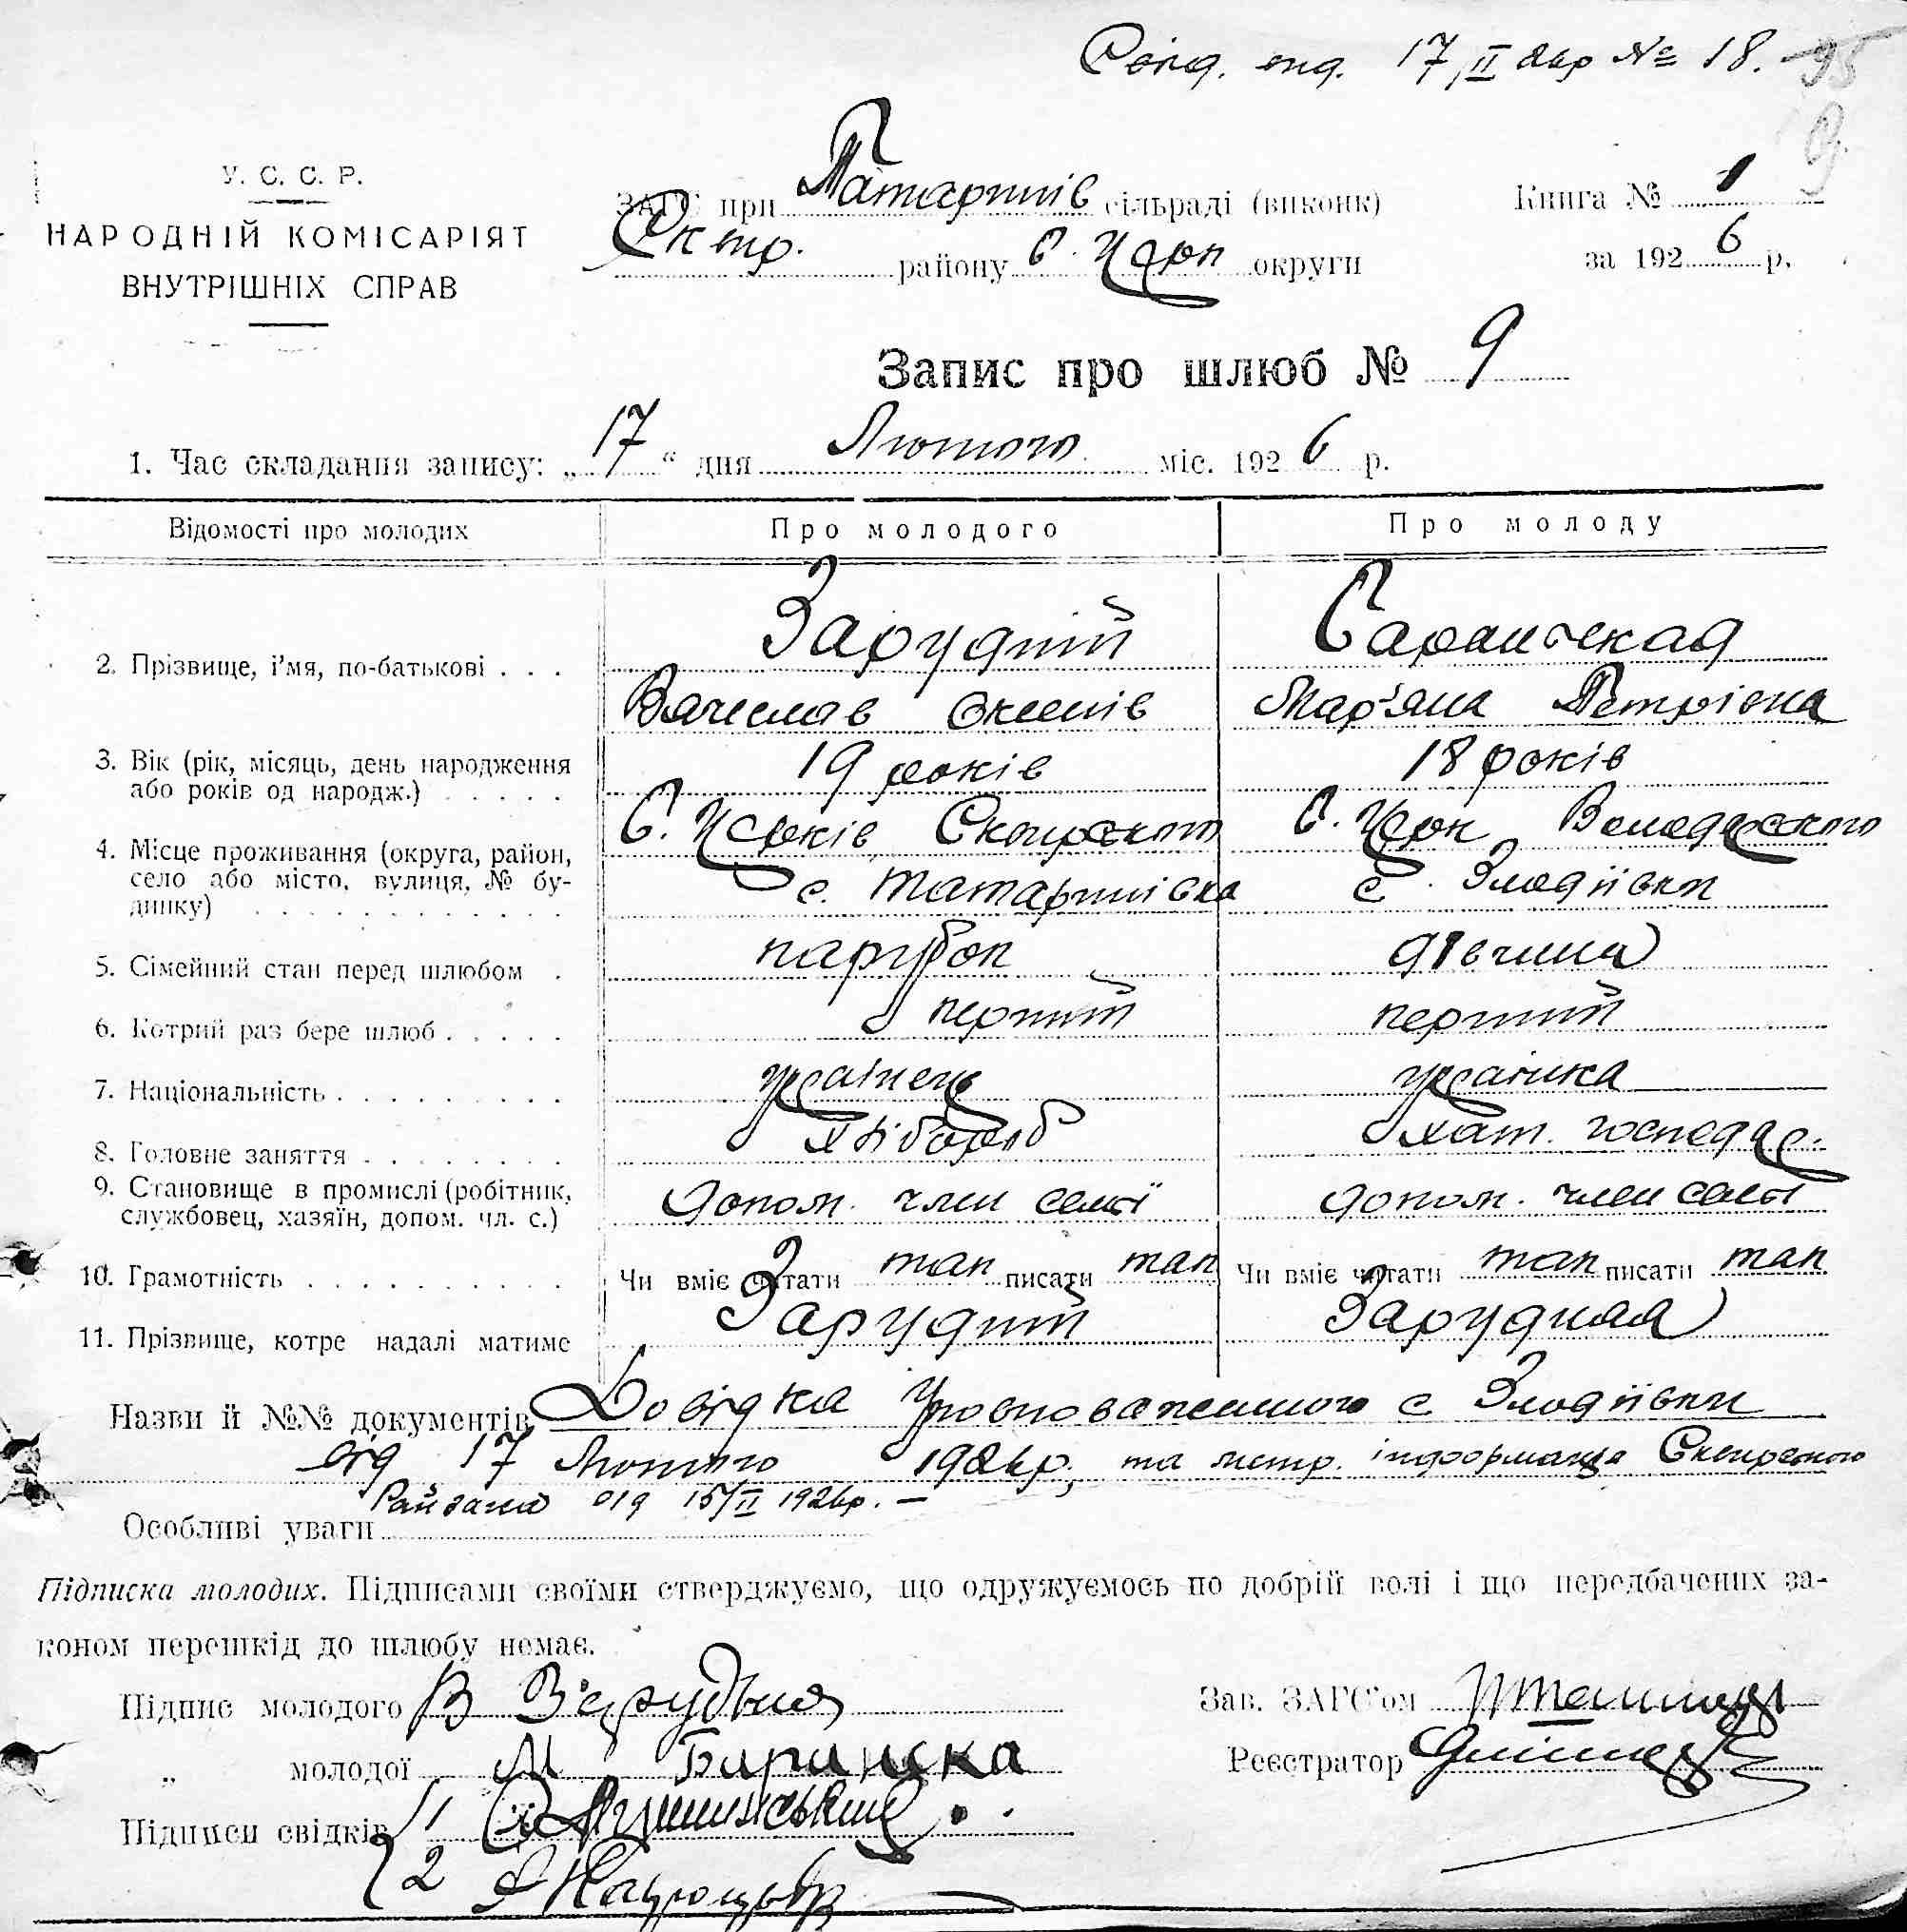 17/II 26р № 18.
У. С. С. Р.
НАРОДНІЙ КОМІСАРІЯТ
ВНУТРІШНІХ СПРАВ
ЗАГС при Татаринів сільраді (виконк)
Сквир. району Б. Церк округи
Книга № 1
за 1926 р.
Запис про шлюб № 9
1. Час складання запису: „17“ дня Лютого міс. 1926 р.
Відомості про молодих Про молодого Про молоду
2. Прізвище, і'мя, по-батькові . . . Зарудний
Вячеслав Мар'яна Петрівна
3. Вік (рік, місяць, день народження або років од народж.) 19 років 18 років
4. Місце проживання (округа, район, село або місто, вулиця, № будинку) Б. Церків Сквирського Б. Церк Володарського
с. Татаринівка с. Злодіївки
5. Сімейний стан перед шлюбом . парубок дівчина
6. Котрий раз бере шлюб . . . . . перший перший
7. Національність . . . . . . . . . українець українка
8. Головне заняття . . . . . . . . хлібороб хат. господар.
9. Становище в промислі (робітник, службовец, хазяїн, допом. чл. с.) допом. член семї допом. член семї
10. Грамотність . . . . . . . . . . Чи вміє читати так писати так Чи вміє читати так писати так
11. Прізвище, котре надалі матиме Зарудний Зарудная
Назви й №№ документів Довідка Уповноваженного с Злодіївки
від 17 Лютого 1926р, та інформація Сквирського
Райзагса від 15/II 1926р. —
Особливі уваги
Підписка молодих. Підписами своїми стверджуємо, що одружуємось по добрій волі і що передбачених за-
коном перешкід до шлюбу немає.
Підпис молодого В
Зав. ЗАГС'ом
„ молодої М
Реєстратор
Підписи свідків 1
2